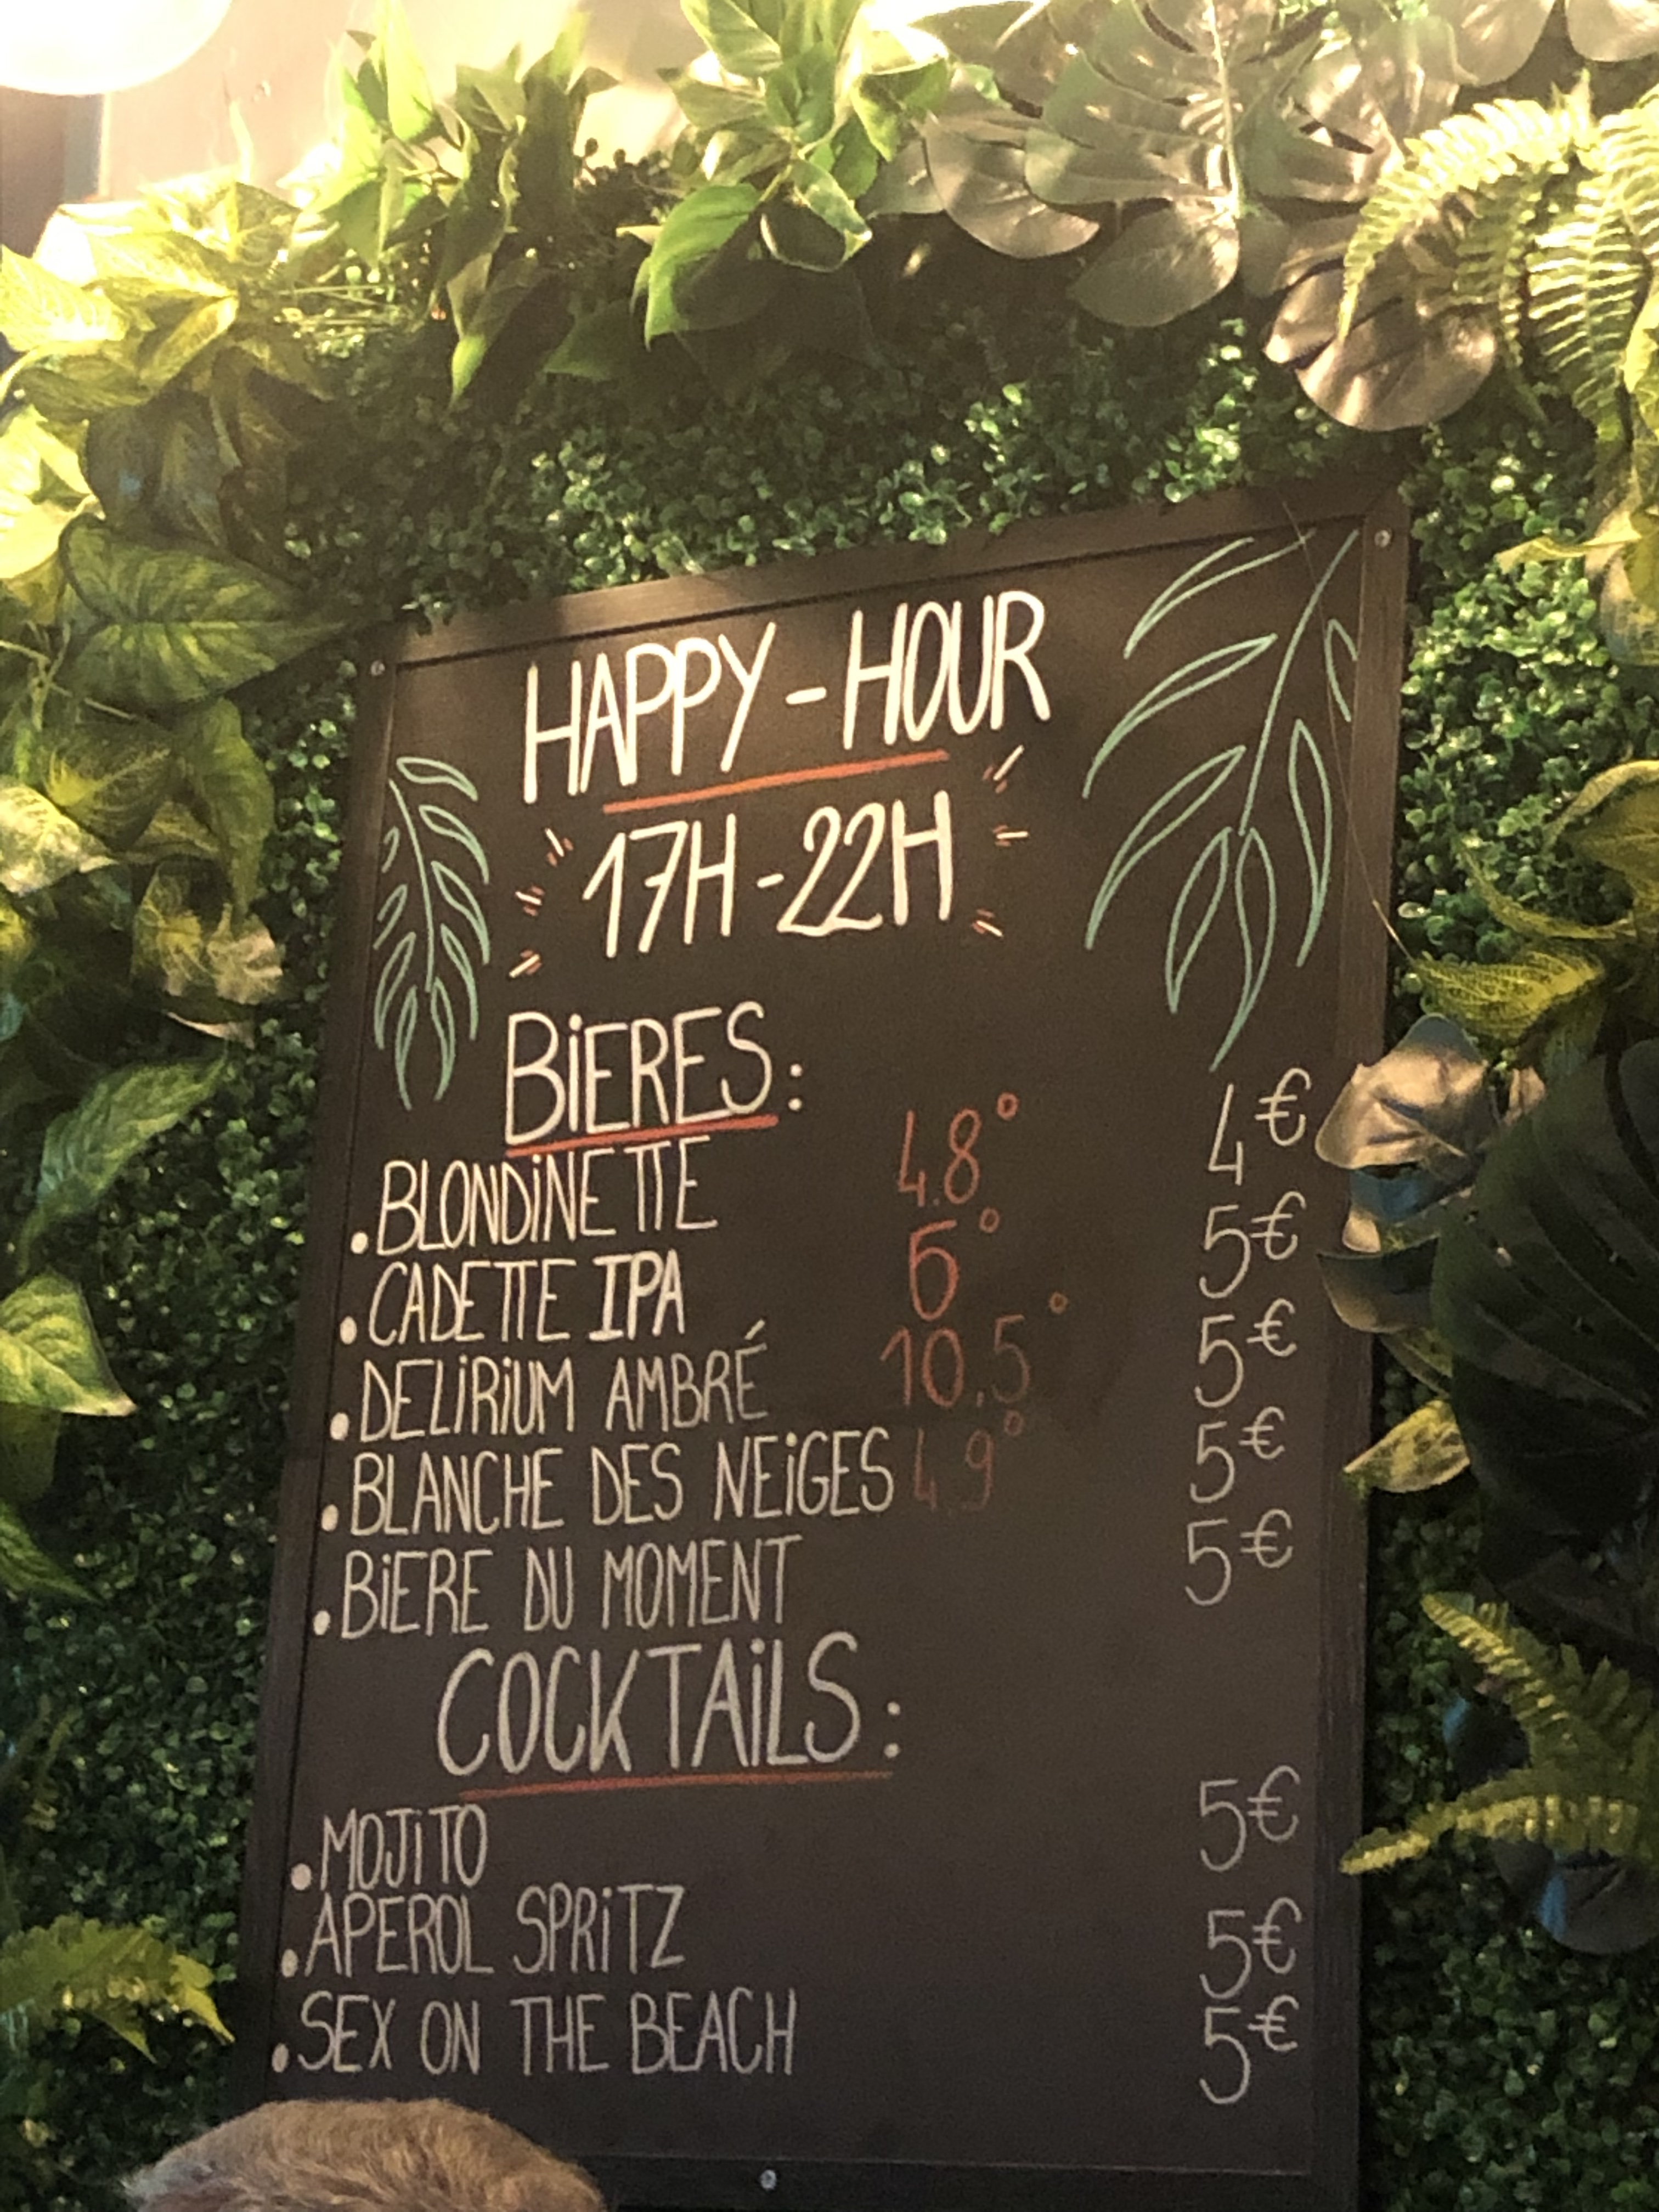 HAPPY - HOUR
17H - 22H
BiERES :
. BLONDiNETTE 4.8° 4€
. CADETTE IPA 6° 5€
. DELiRiUM AMBRÉ 10.5° 5€
. BLANCHE DES NEiGES 4.9° 5€
. BiERE DU MOMENT 5€
COCKTAiLS :
. MOJiTO 5€
. APEROL SPRiTZ 5€
. SEX ON THE BEACH 5€